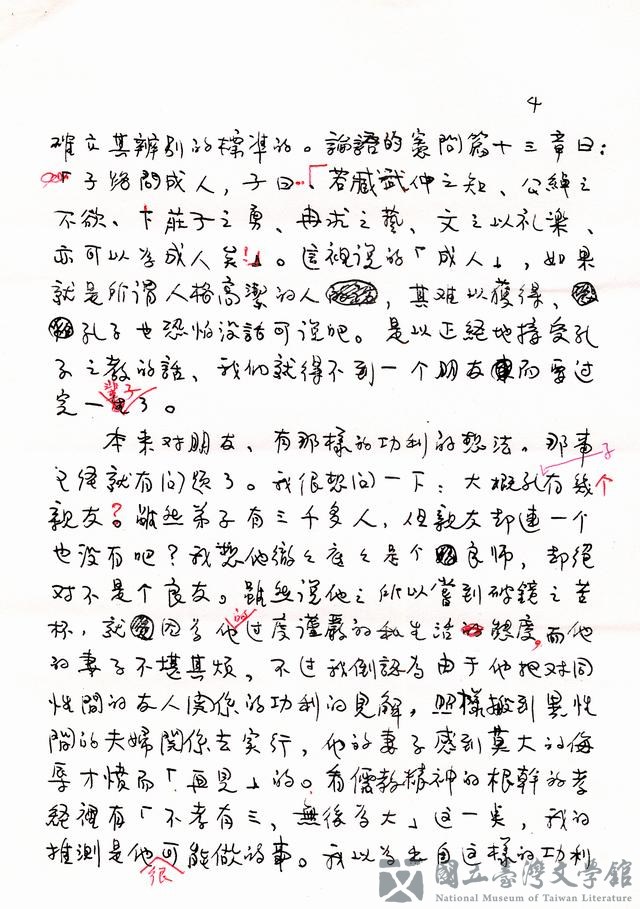 4
確立其辨別的標準的。論語的憲問篇十三章曰：
「子路問成人，子曰：「若臧武仲之知、公綽之
不欲、卞莊子之勇、冉求之藝、文之以礼楽、
亦可以為成人矣！」。這裡说的「成人」，如果
就是所谓人格高潔的人，其难以獲得、
孔子也恐怕没話可说吧。是以正経地接受孔
子之教的話、我们就得不到一个朋友而要过
完一輩子了。
本来对朋友、有那樣的功利的想法。那事
已经就有问题了。我很想问一下：大概孔子有幾个
親友？雖然弟子有三千多人，但親友却連一个
也没有吧？我想他徹々底々是个良师，却絕
对不是个良友。雖然说他之所以嘗到破鏡之苦
杯，就因为他的过度谨嚴的私生活態度，而他
的妻子不堪其烦。不过我倒認為由于他把对同
性間的友人関係的功利的見解，照樣搬到異性
間的夫婦関係去実行，他的妻子感到莫大的侮
辱才愤而「再見」的。看儒教精神的根幹的孝
経裡有「不孝有三，無後為大」这一类，我的
推測是他很可能做的事。我以为出自这樣的功利
國立臺灣文學館
National Museum of Taiwan Literature